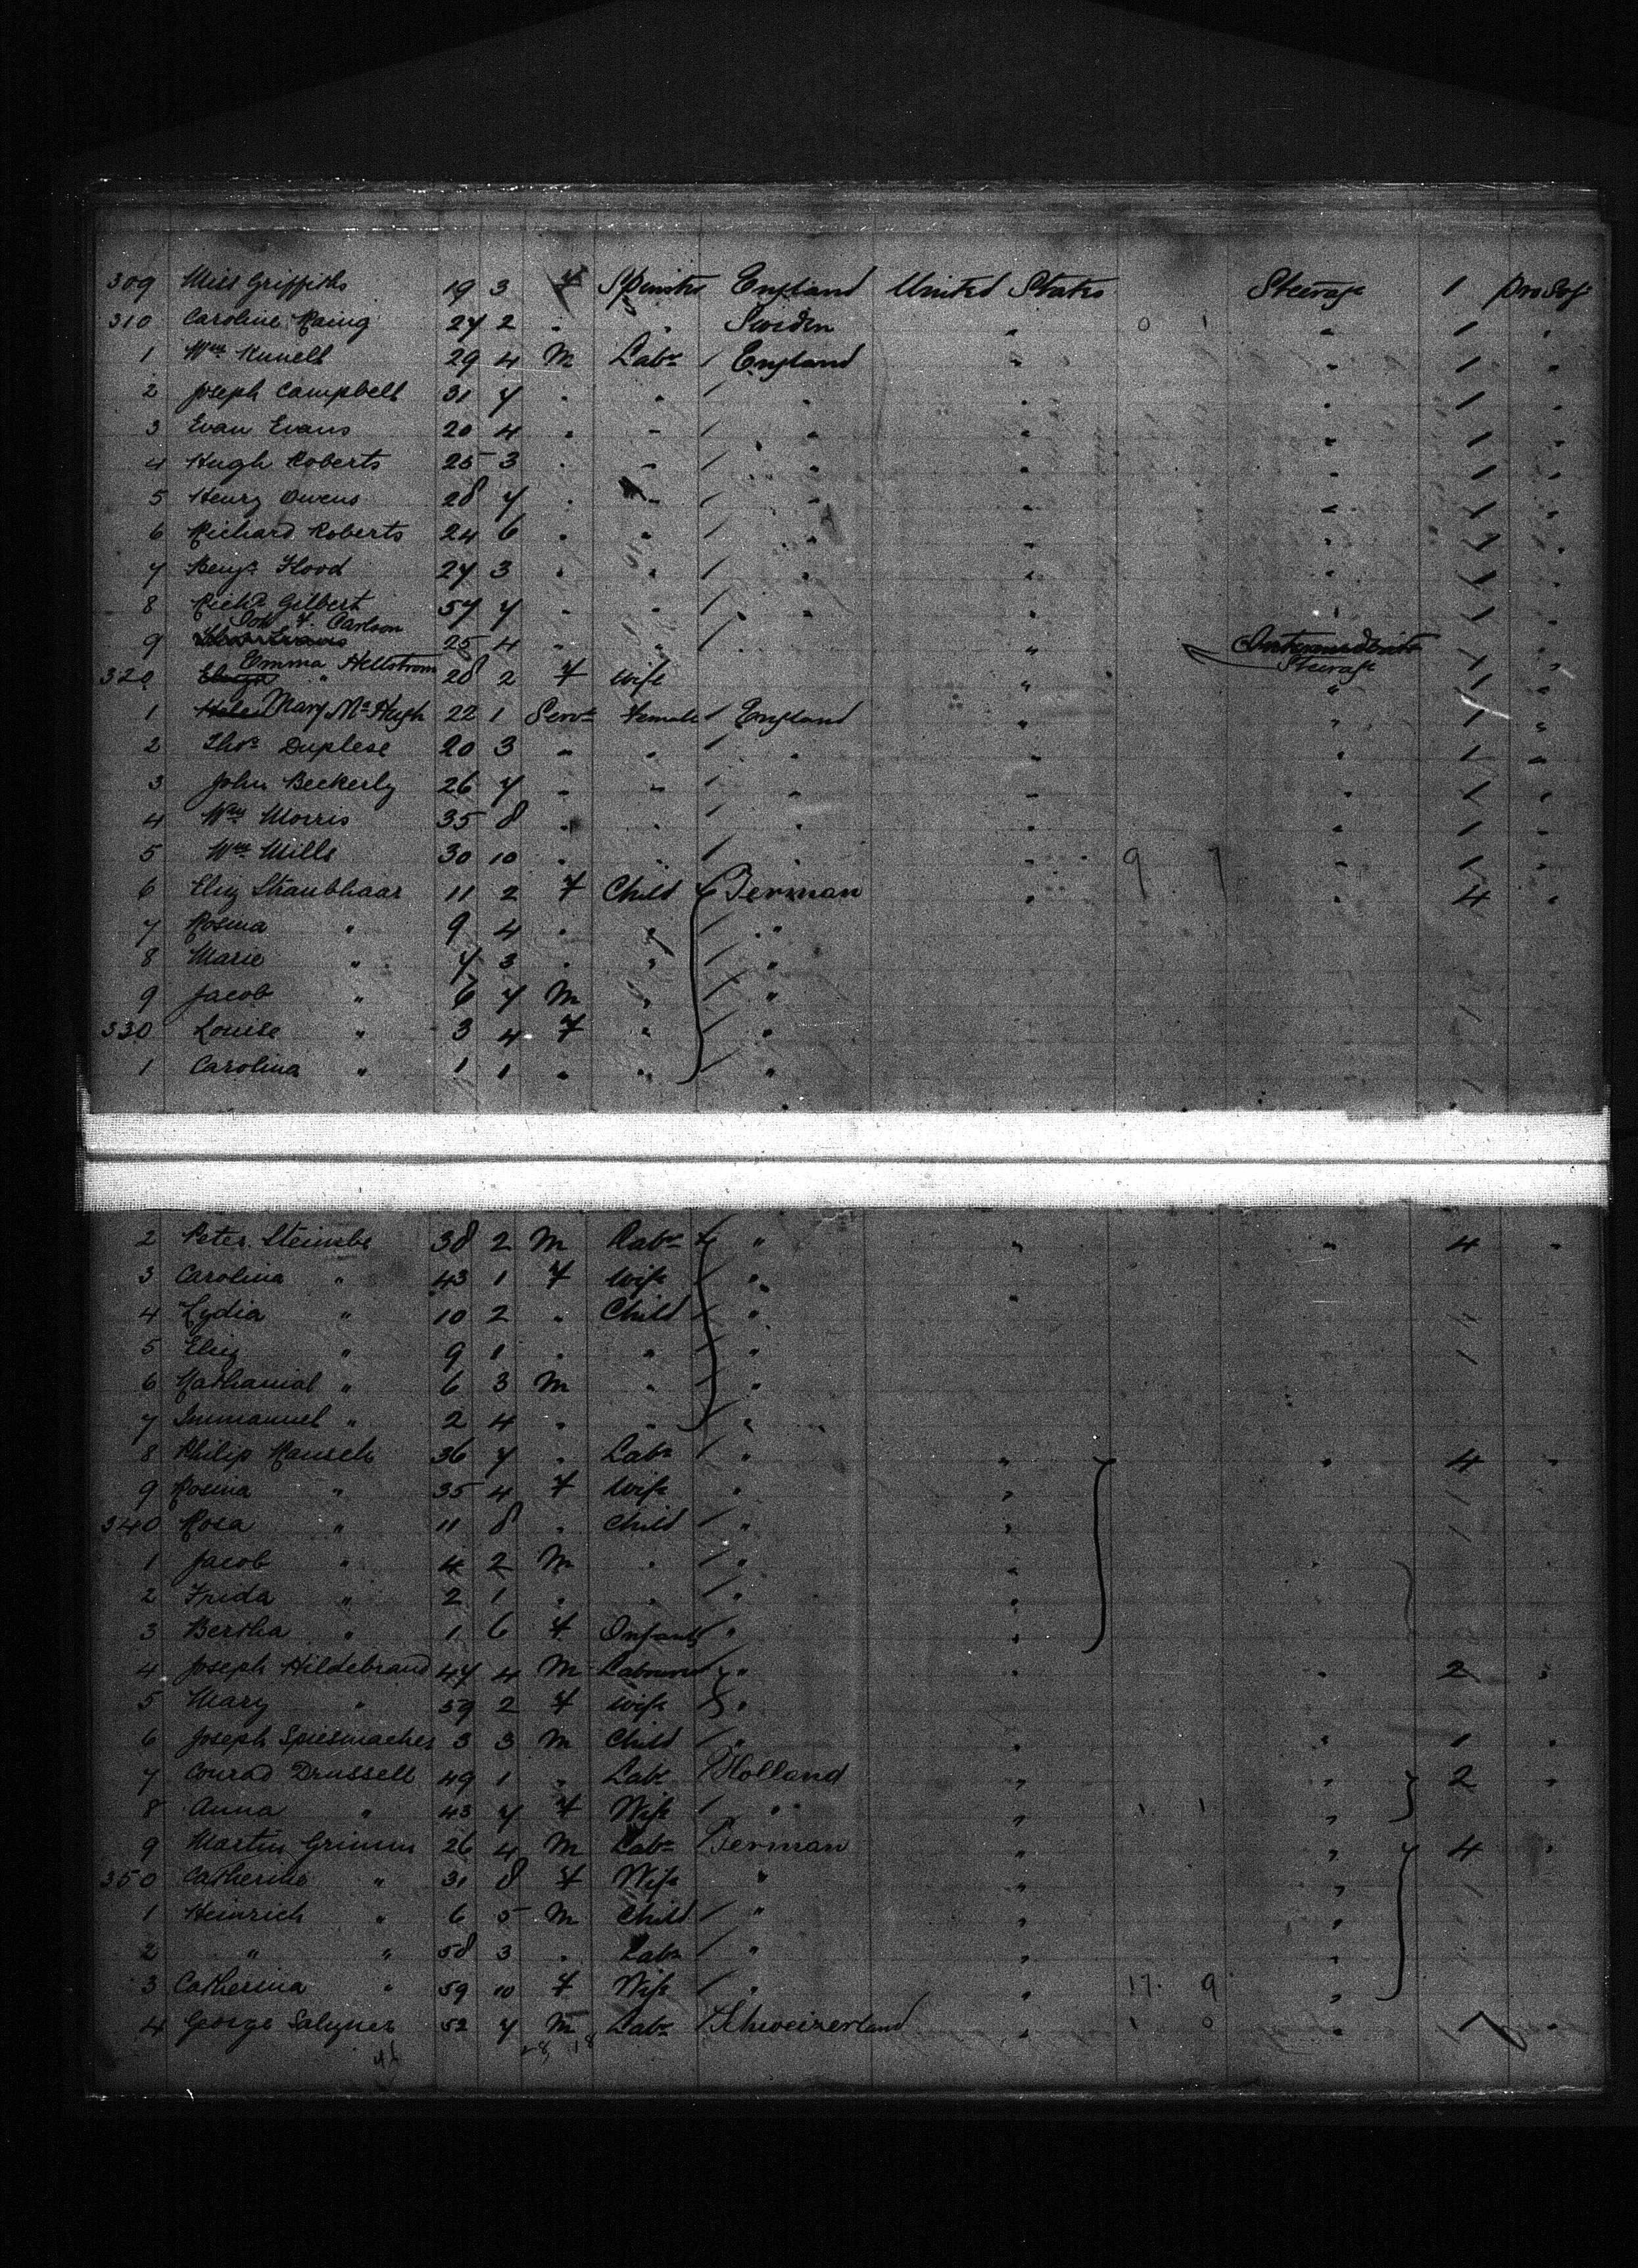 309 Miss Griffiths 19 3 F Spinster England United States Steerage 1 Pro Soj
310 Caroline Raing 27 2 " " Sweden " " 1 "
1 Wm 29 4 M Labr England " " 1 "
2 Joseph Campbell 31 7 " " " " " 1 "
3 Evan Evans 20 4 " " " " " 1 "
4 Hugh Roberts 25 3 " " " " " 1 "
5 Henry Owens 28 7 " " " " " 1 "
6 Richard Roberts 24 6 " " " " " 1 "
7 Benjn Flood 27 3 " " " " " 1 "
8 Richd Gilbert 57 7 " " " " " 1 "
F. Carlson
9 25 4 " " " Intermediate
Emma Hellstrom Steerage 1 "
320 Eliza " 28 2 F Wife " " 1 "
1 Mary McHugh 22 1 Servt Female England " " 1 "
2 Thos Duplese 20 3 " " " " " 1 "
3 John Beckerly 26 7 " " " " " 1 "
4 Wm Morris 35 8 " " " " " 1 "
5 Wm Mills 30 10 " " " 9 7 " 1 "
6 Eliz Straubhaar 11 2 F Child German " " 4 "
7 Rosina " 9 4 " " "
8 Marie " 7 3 " " "
9 Jacob " 6 7 M " "
330 Louise " 3 4 F " "
1 Carolina " 1 1 " " "
2 Peter 38 2 M Labr " " " 4 "
3 Carolina " 43 1 F Wife "
4 Lydia " 10 2 " Child " "
5 Eliz " 9 1 " " "
6 Nathanial " 6 3 M " "
7 Immanuel " 2 4 " " "
8 Philip Rausch 36 7 " Labr " " " 4 "
9 Rosina " 35 4 F Wife " "
340 Rosa " 11 8 " Child " "
1 Jacob " 4 2 M " " "
2 Frida " 2 1 " " " "
3 Bertha " 1 6 F Infant " "
4 Joseph Hildebrand 47 4 M Labourer " " " 2 "
5 Mary " 59 2 F Wife "
6 Joseph Spiesmacher 3 3 M Child " " " 1 "
7 Conrad Drussell 49 1 " Labr Holland " " 2 "
8 Anna " 43 7 F Wife " " 1 1 "
9 Martin Grimm 26 4 M Labr German " " 4 "
350 Catherina " 31 8 F Wife " " "
1 Heinrich " 6 5 M Child " " "
2 " " 58 3 " Labr " " "
3 Catherina " 59 10 F Wife " " 17 9 "
4 George 52 7 M Labr Schweizerland " 1 0 " 1 "